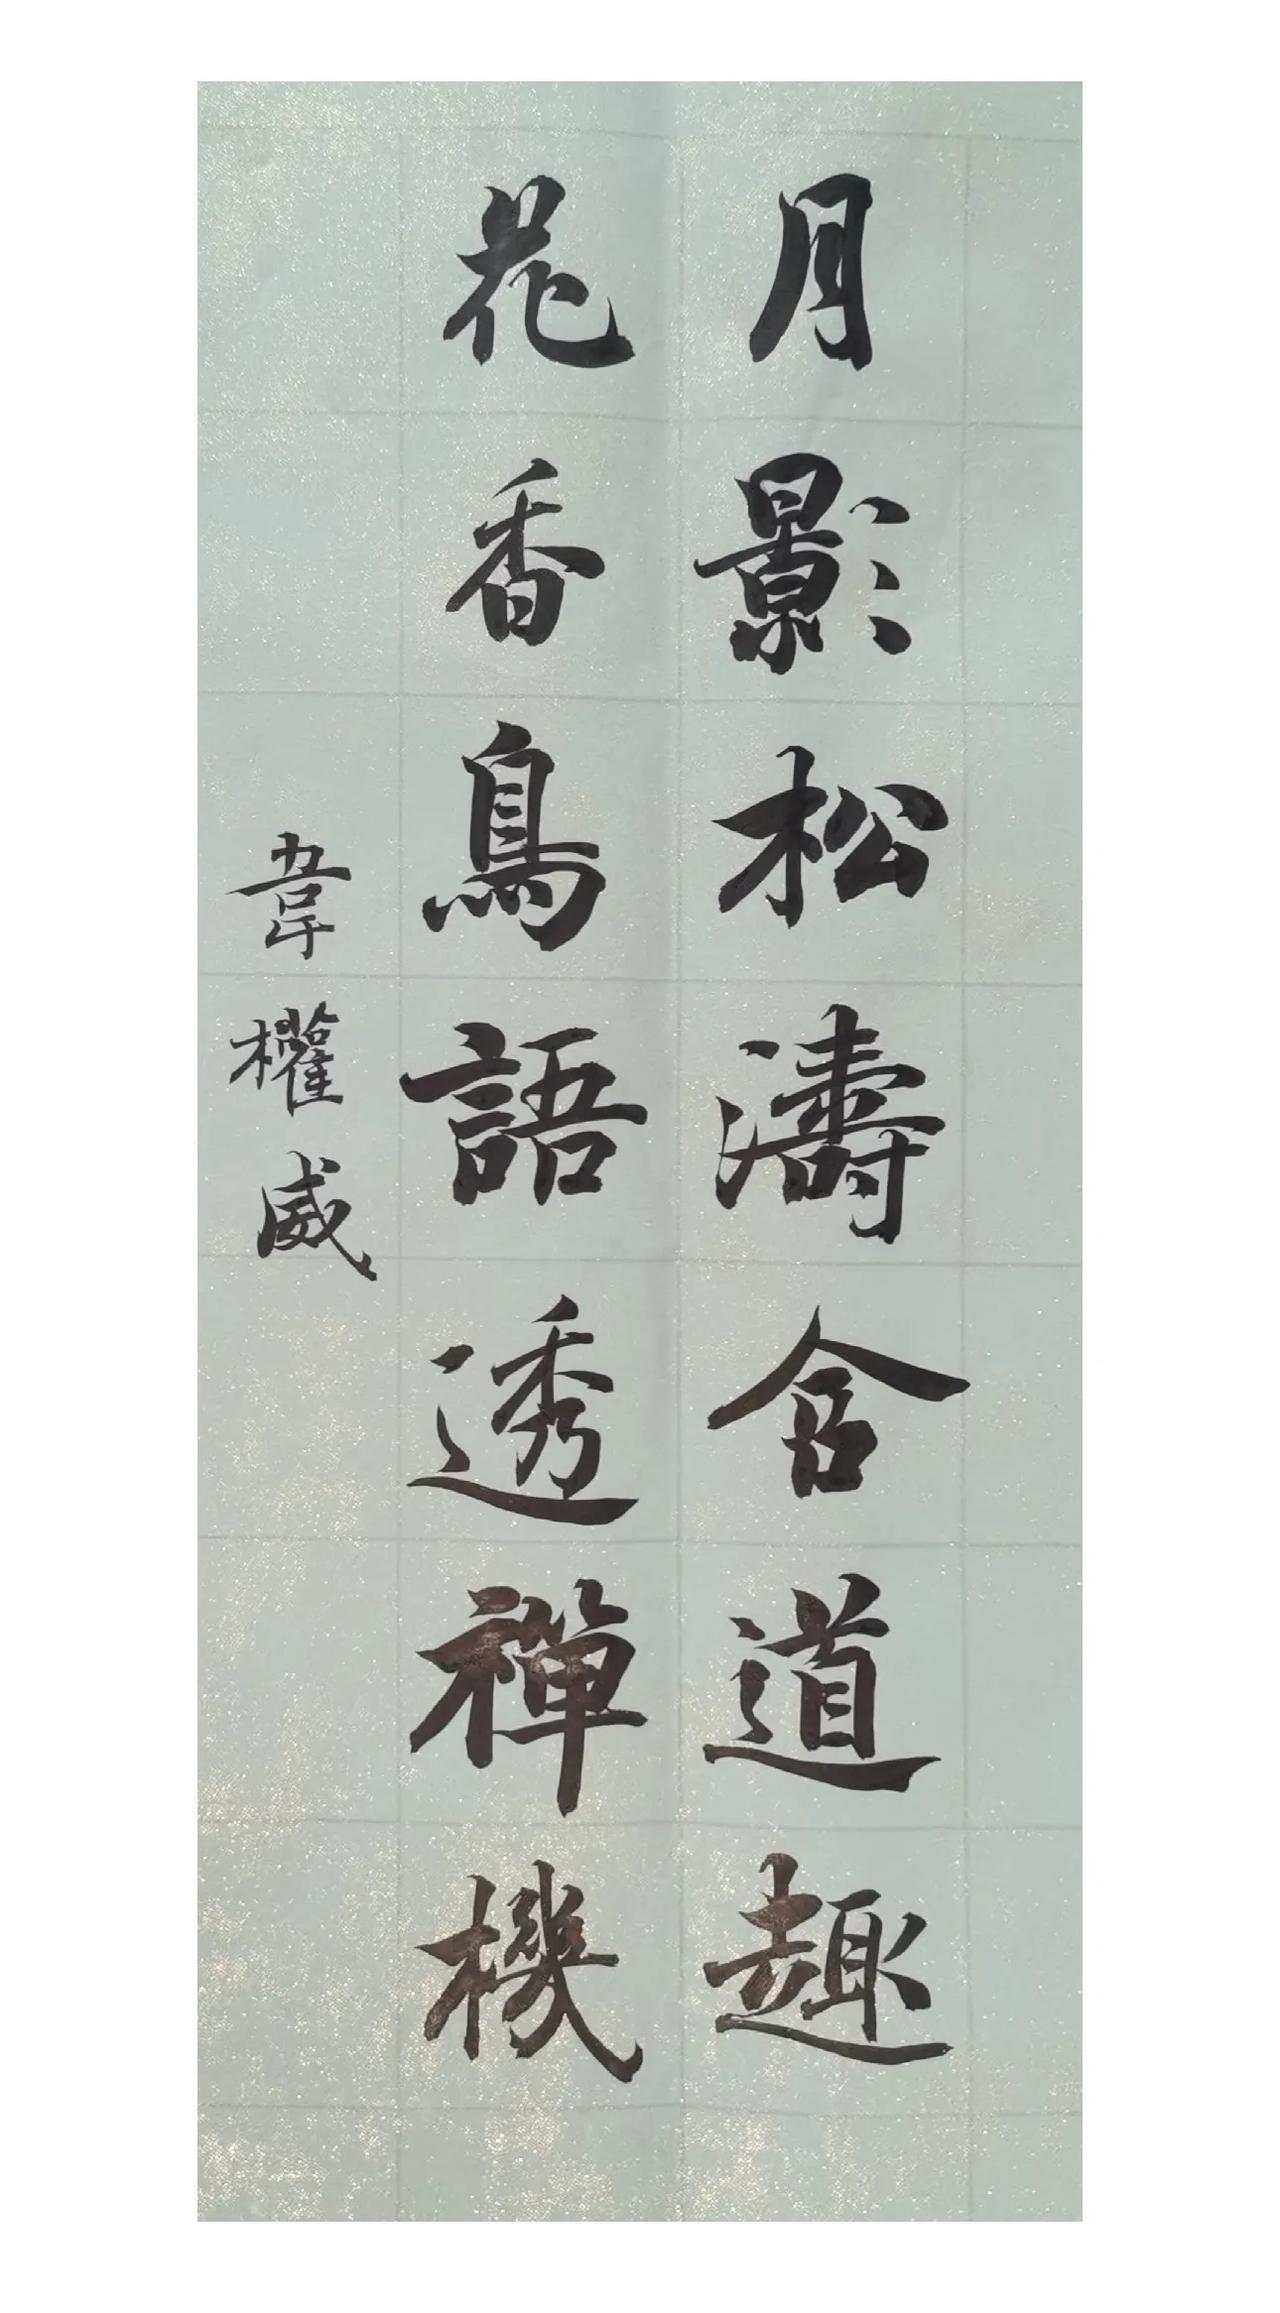 月影松濤含道趣
花香鳥語透禪機
韋權威